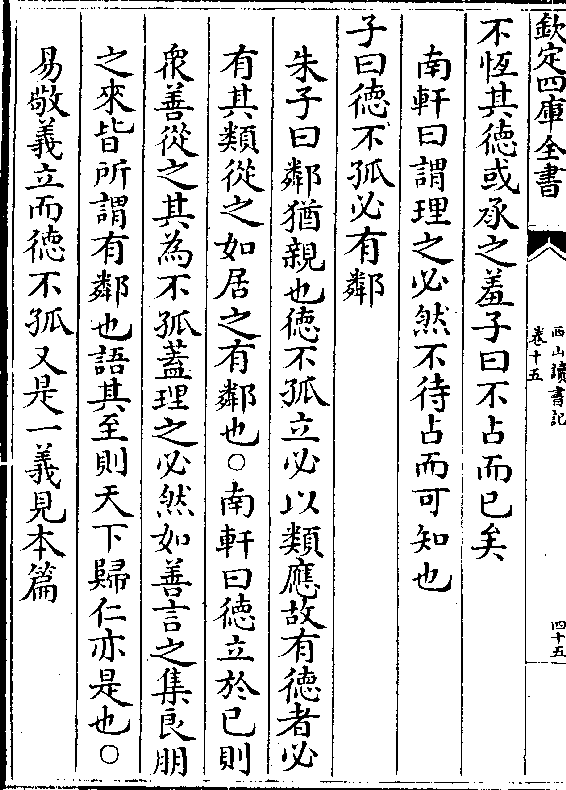 欽定四庫全書
西山讀書記
卷十五
四十五
不恆其徳或承之羞子曰不占而已矣
南軒曰謂理之必然不待占而可知也
子曰徳不孤必有鄰
朱子曰鄰猶親也徳不孤立必以類應故有徳者必
有其類從之如居之有鄰也○南軒曰徳立於已則
衆善從之其為不孤蓋理之必然如善言之集良朋
之來皆所謂有鄰也語其至則天下歸仁亦是也○
易敬義立而徳不孤又是一義見本篇